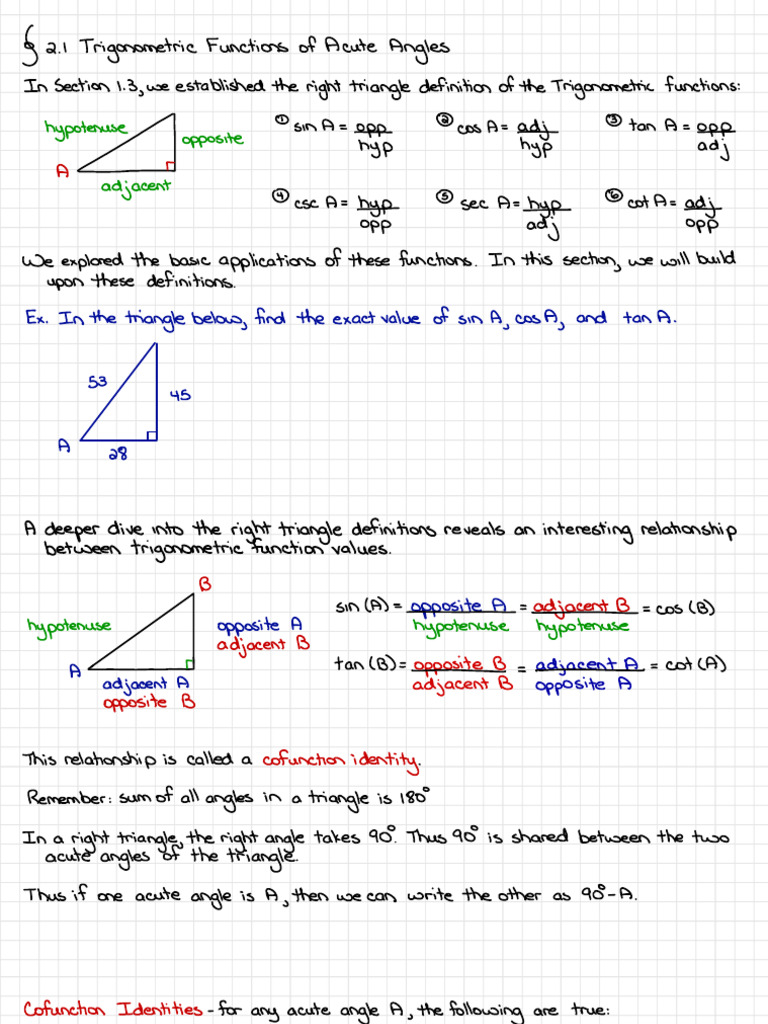 § 2.1 Trigonometric Functions of Acute Angles
In Section 1.3, we established the right triangle definition of the Trigonometric functions:
hypotenuse
opposite
A
adjacent
① sin A = opp/hyp ② cos A = adj/hyp ③ tan A = opp/adj
④ csc A = hyp/opp ⑤ sec A = hyp/adj ⑥ cot A = adj/opp
We explored the basic applications of these functions. In this section, we will build
upon these definitions.
Ex. In the triangle below, find the exact value of sin A, cos A, and tan A.
53
45
A
28
A deeper dive into the right triangle definitions reveals an interesting relationship
between trigonometric function values.
B
hypotenuse
opposite A
adjacent B
A
adjacent A
opposite B
sin (A) = opposite A/hypotenuse = adjacent B/hypotenuse = cos (B)
tan (B) = opposite B/adjacent B = adjacent A/opposite A = cot (A)
This relationship is called a cofunction identity.
Remember: sum of all angles in a triangle is 180°
In a right triangle, the right angle takes 90°. Thus 90° is shared between the two
acute angles of the triangle.
Thus if one acute angle is A, then we can write the other as 90° - A.
Cofunction Identities - for any acute angle A, the following are true: